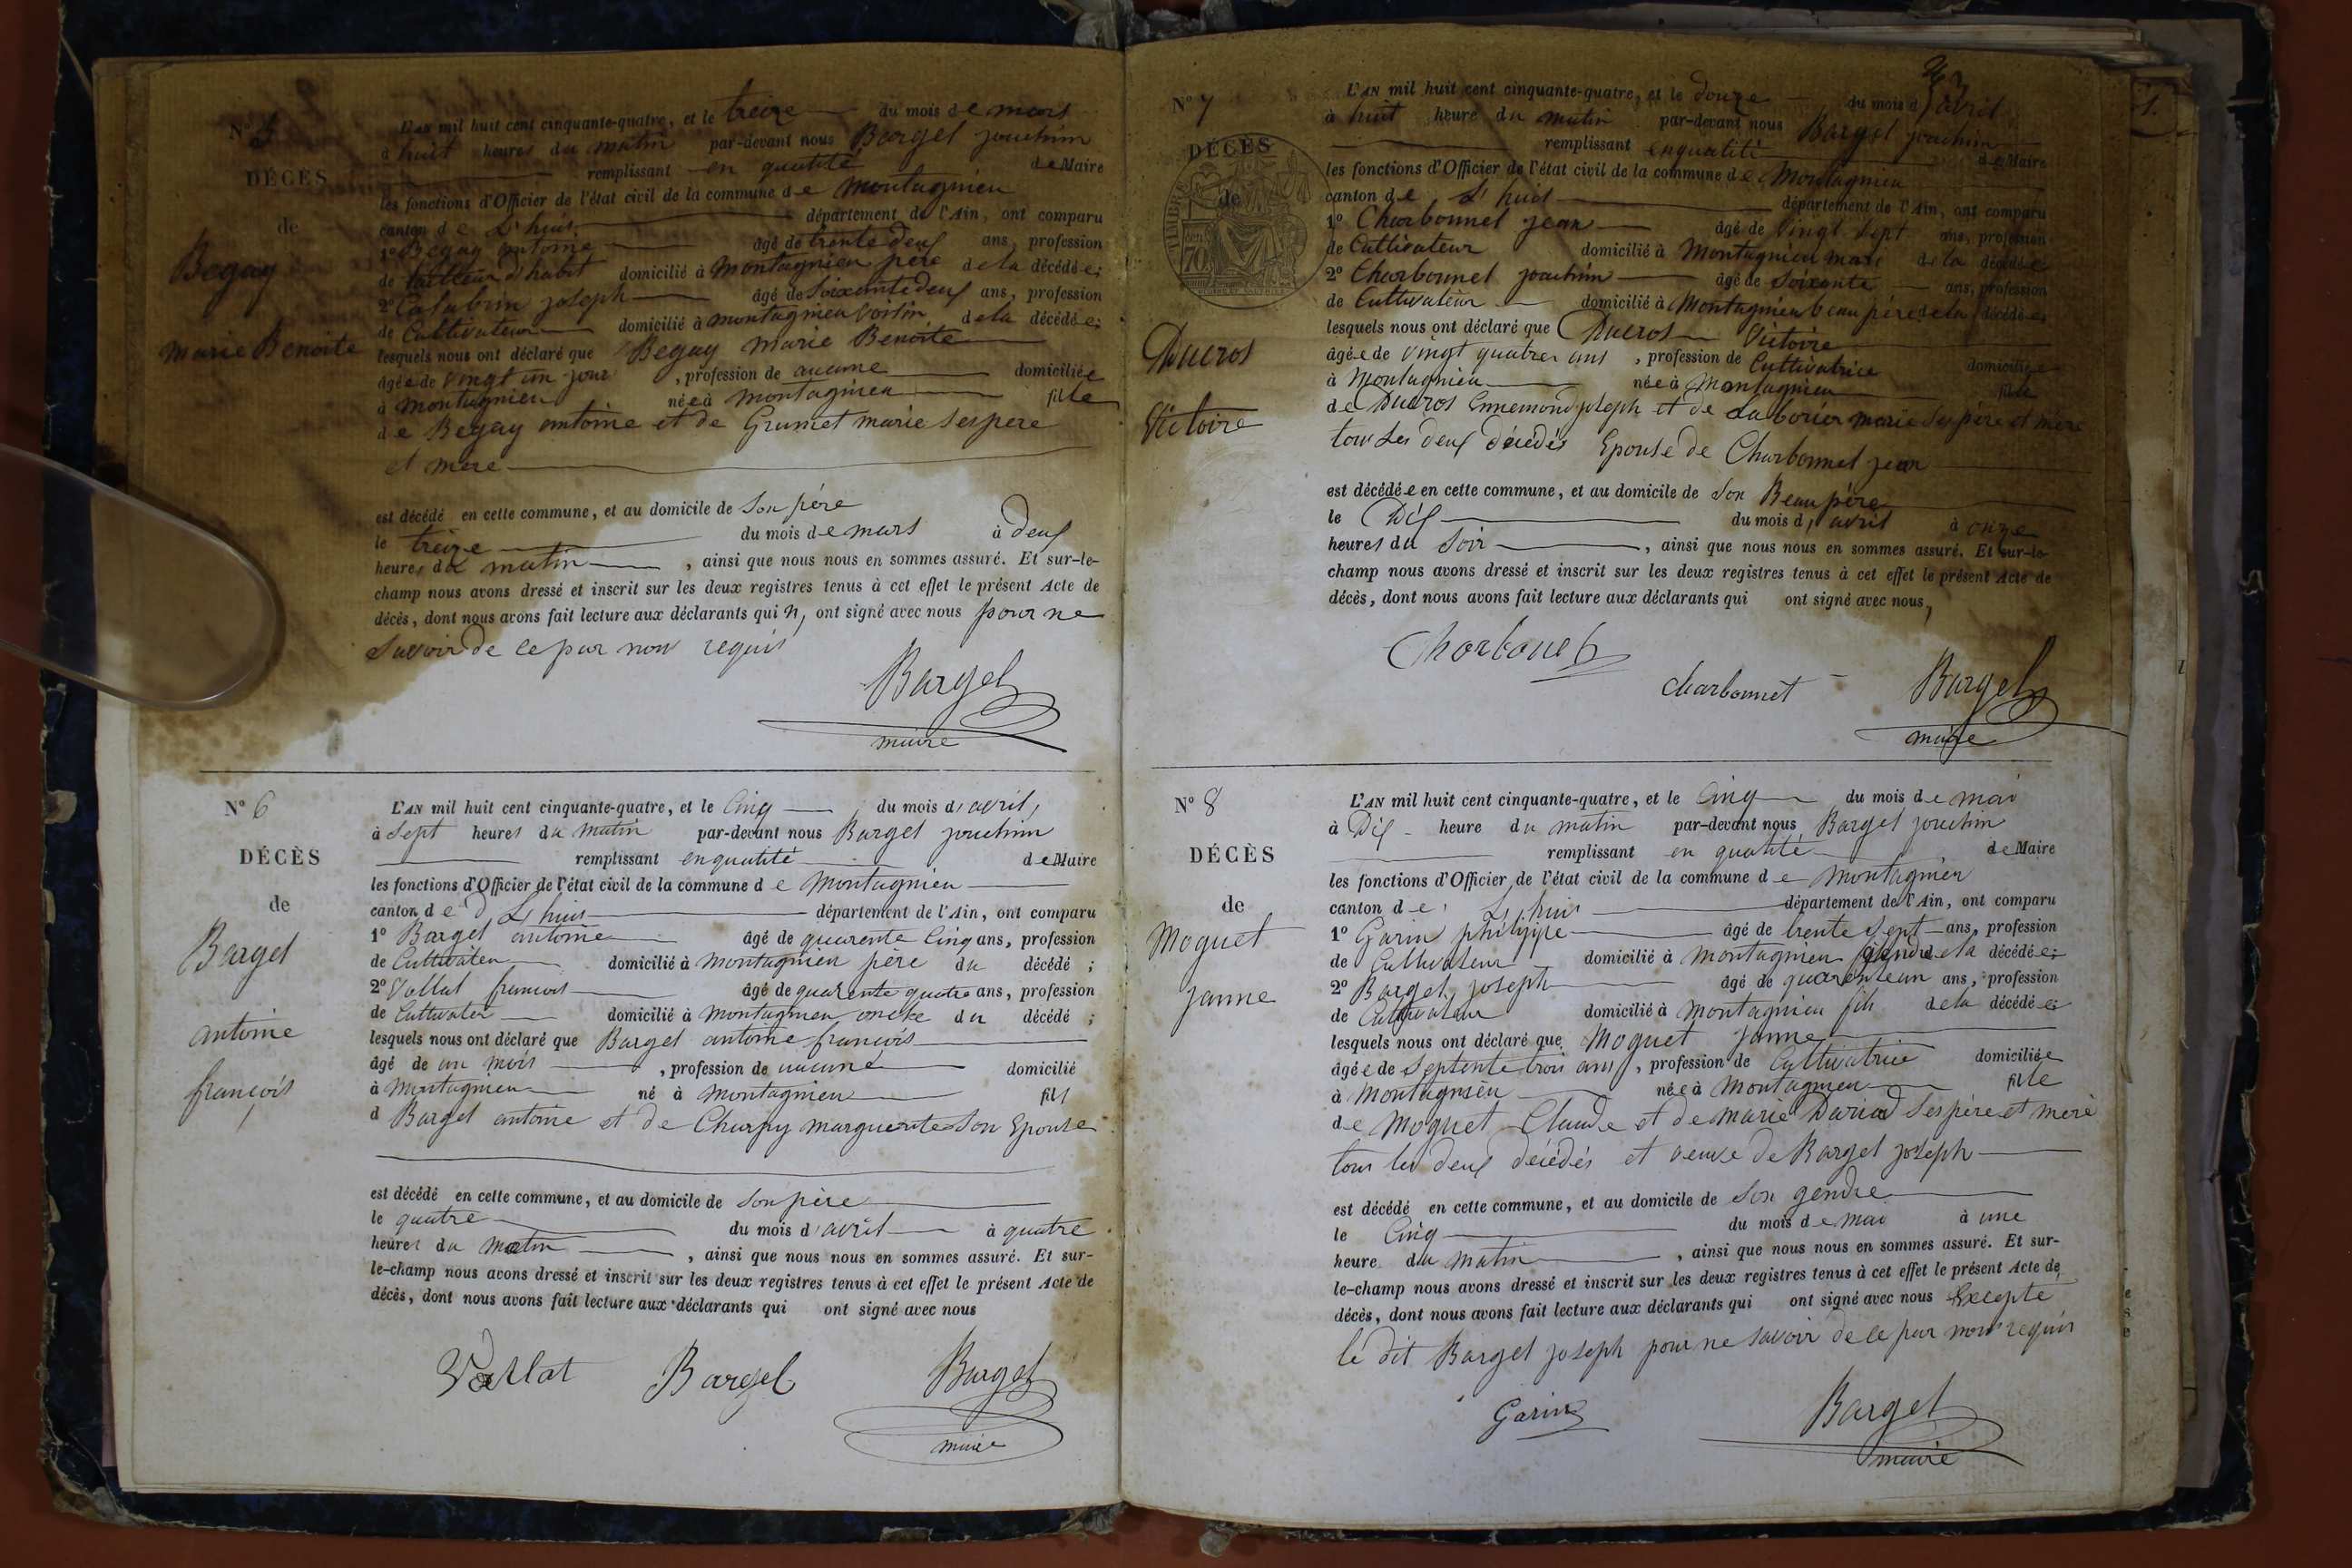 N° 5
DÉCÈS
de
Begay
marie Benoite
L'AN mil huit cent cinquante-quatre, et le treize du mois de mars
à huit heures du matin par-devant nous Bargel jouchim
remplissant en qualité de Maire
les fonctions d'Officier de l'état civil de la commune de montagnieu
canton de L'huis département de l'Ain, ont comparu
1° Begay antoine âgé de trente deux ans, profession
de tailleur d'habit domicilié à montagnieu père de la décédée;
2° Calabrin joseph âgé de soixante deux ans, profession
de Cultivateur domicilié à montagnieu voisin de la décédée;
lesquels nous ont déclaré que Begay marie Benoite
âgée de vingt un jour, profession de aucune domiciliée
à montagnieu née à montagnieu fille
de Begay antoine et de Grumet marie ses père
et mère
est décédé en cette commune, et au domicile de son père
le treize du mois de mars à deux
heures du matin, ainsi que nous nous en sommes assuré. Et sur-le-
champ nous avons dressé et inscrit sur les deux registres tenus à cet effet le présent Acte de
décès, dont nous avons fait lecture aux déclarants qui n, ont signé avec nous pour ne
savoir de ce par nous requis
Bargel
maire
N° 6
DÉCÈS
de
Bargel
antoine
françois
L'AN mil huit cent cinquante-quatre, et le cinq du mois d'avril,
à sept heures du matin par-devant nous Bargel jouchim
remplissant en qualité de Maire
les fonctions d'Officier de l'état civil de la commune de Montagnieu
canton de L'huis département de l'Ain, ont comparu
1° Bargel antoine âgé de quarente cinq ans, profession
de Cultivateu domicilié à montagnieu père du décédé;
2° Vallat francois âgé de quarente quatre ans, profession
de Cultivateu domicilié à montagnieu oncle du décédé;
lesquels nous ont déclaré que Bargel antoine françois
âgé de un mois, profession de aucune domicilié
à Montagnieu né à montagnieu fils
d Bargel antoine et de Charpy marguerite son Epouse
est décédé en cette commune, et au domicile de son père
le quatre du mois d'avril à quatre
heures du matin, ainsi que nous nous en sommes assuré. Et sur-
le-champ nous avons dressé et inscrit sur les deux registres tenus à cet effet le présent Acte de
décès, dont nous avons fait lecture aux déclarants qui ont signé avec nous
Vallat Bargel Bargel
maire
N° 7
DÉCÈS
de
Ducros
Victoire
L'AN mil huit cent cinquante-quatre, et le douze du mois d'avril
à huit heure du matin par-devant nous Bargel jouchim
remplissant en qualité de Maire
les fonctions d'Officier de l'état civil de la commune de Montagnieu
canton de L'huis département de l'Ain, ont comparu
1° Charbonnet jean âgé de vingt sept ans, profession
de Cultivateur domicilié à Montagnieu mari de la décédée
2° Charbonnet jouchim âgé de soixante ans, profession
de Cultivateur domicilié à Montagnieu beau père de la décédée
lesquels nous ont déclaré que Ducros Victoire
âgée de vingt quatre ans, profession de Cultivatrice domiciliée
à Montagnieu née à Montagnieu fille
de Ducros Ennemond joseph et de Laborier marie ses père et mère
tous les deux décédés Epouse de Charbonnet jean
est décédée en cette commune, et au domicile de son Beau père
le Dix du mois d, avril à onze
heures du soir, ainsi que nous nous en sommes assuré. Et sur-le-
champ nous avons dressé et inscrit sur les deux registres tenus à cet effet le présent Acte de
décès, dont nous avons fait lecture aux déclarants qui ont signé avec nous,
Charbonet
charbonnet Bargel
maire
N° 8
DÉCÈS
de
Moguet
janne
L'AN mil huit cent cinquante-quatre, et le cinq du mois de mai
à Dix heure du matin par-devant nous Bargel jouchim
remplissant en qualité de Maire
les fonctions d'Officier de l'état civil de la commune de Montagnieu
canton de L'huis département de l'Ain, ont comparu
1° Garin philippe âgé de trente sept ans, profession
de Cultivateur domicilié à montagnieu gendre de la décédée;
2° Bargel joseph âgé de quarente un ans, profession
de Cultivateur domicilié à montagnieu fils de la décédée;
lesquels nous ont déclaré que Moguet janne
âgée de septente trois ans, profession de Cultivatrice domiciliée
à Montagnieu née à montagnieu fille
de Moguet Claude et de marie Dariad ses père et mère
tous les deux décédés et veuve de Bargel joseph
est décédé en cette commune, et au domicile de son gendre
le cinq du mois de mai à une
heure du matin, ainsi que nous nous en sommes assuré. Et sur-
le-champ nous avons dressé et inscrit sur les deux registres tenus à cet effet le présent Acte de
décès, dont nous avons fait lecture aux déclarants qui ont signé avec nous Excepté
le dit Bargel joseph pour ne savoir de ce par nous requis
Garin Bargel
maire